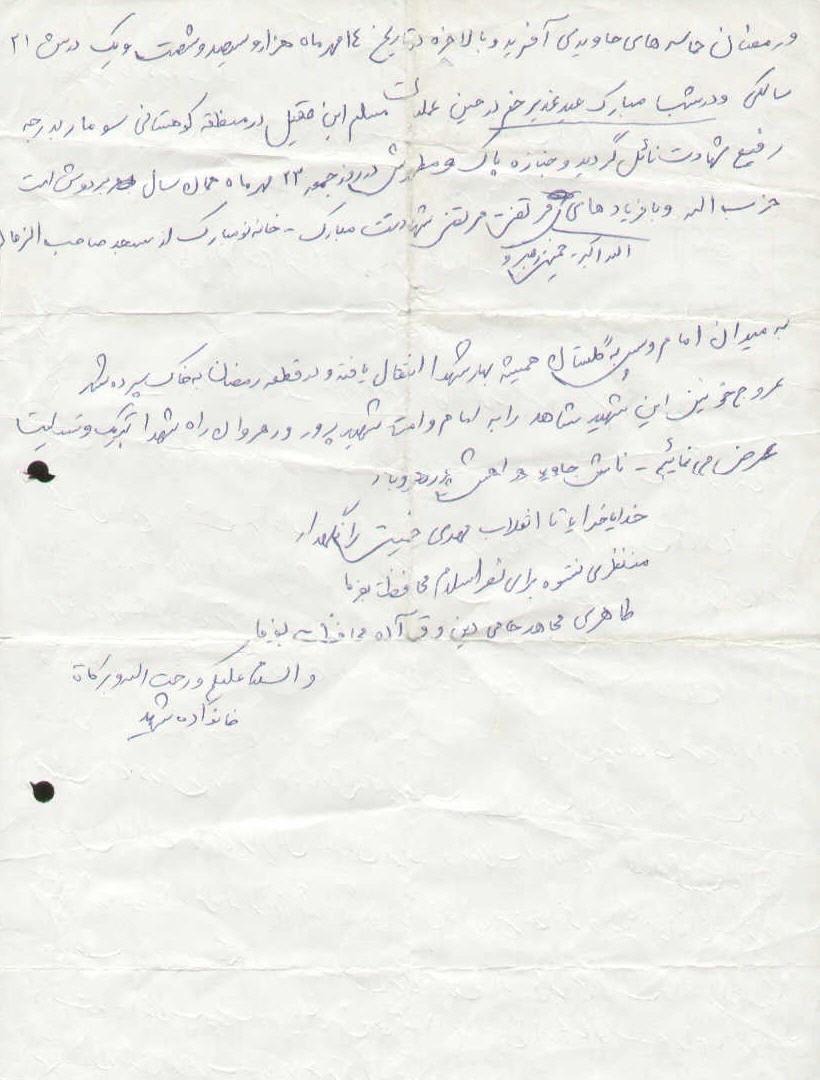 و رمضان حماسه های جاویدی آفرید و بالاخره در تاریخ ١٤ مهرماه هزار و سیصد و شصت و یک در سن ٢١
سالگی و در شب مبارک عید غدیر خم در حین عملیات مسلم ابن عقیل در منطقه کوهستانی سومار بدرجه
رفیع شهادت نائل گردید و جنازه پاک و مطهرش در روز جمعه ٢٣ مهرماه همان سال بر دوش امت
حزب الله و با فریادهای مرتضی مرتضی شهادتت مبارک - خانه نو مبارک از مسجد صاحب الزمان
الله اکبر - خمینی رهبر و
به میدان امام و سپس به گلستان همیشه بهار شهدا انتقال یافته و در قطعه رمضان به خاک سپرده شد
عروج خونین این شهید شاهد را به امام و امت شهید پرور و رهروان راه شهدا تبریک و تسلیت
عرض می نمائیم - نامش جاوید و راهش پر رهرو باد
خدایا خدایا تا انقلاب مهدی خمینی را نگهدار
منتظری نستوه برای نصر اسلام محافظت بفرما
طاهری مجاهد حامی دین و قرآن محافظت بفرما
والسلام علیکم و رحمت الله و برکاة
خانواده شهید